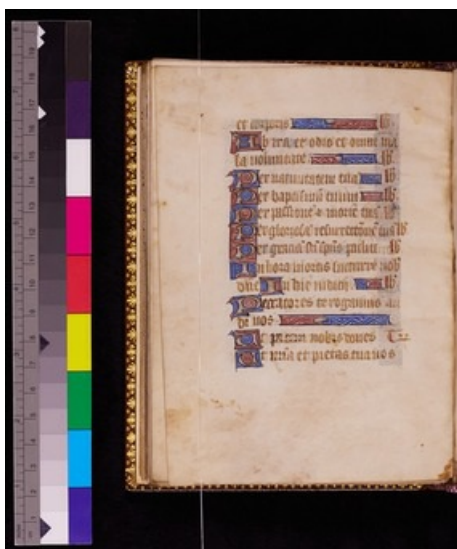 et corporis lib
Ab ira et odio et omni ma
la voluntate lib
Per nativitatem tuā lib
Per baptismū tuum lib
Per passionē & mortē tuā lib
Per gloriosā resurrectionē tuā lib
Per gratiā sc̄i sp̄us lib
In hora mortis succurre nob
dn̄e In die iudicii lib
Peccatores te rogamus au
di nos
Ut pacem nobis dones
Ut mīa et pietas tua nos